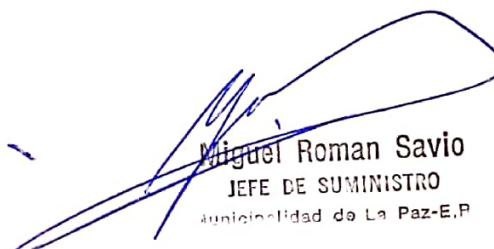 Miguel Roman Savio
JEFE DE SUMINISTRO
Municipalidad de La Paz-E.R